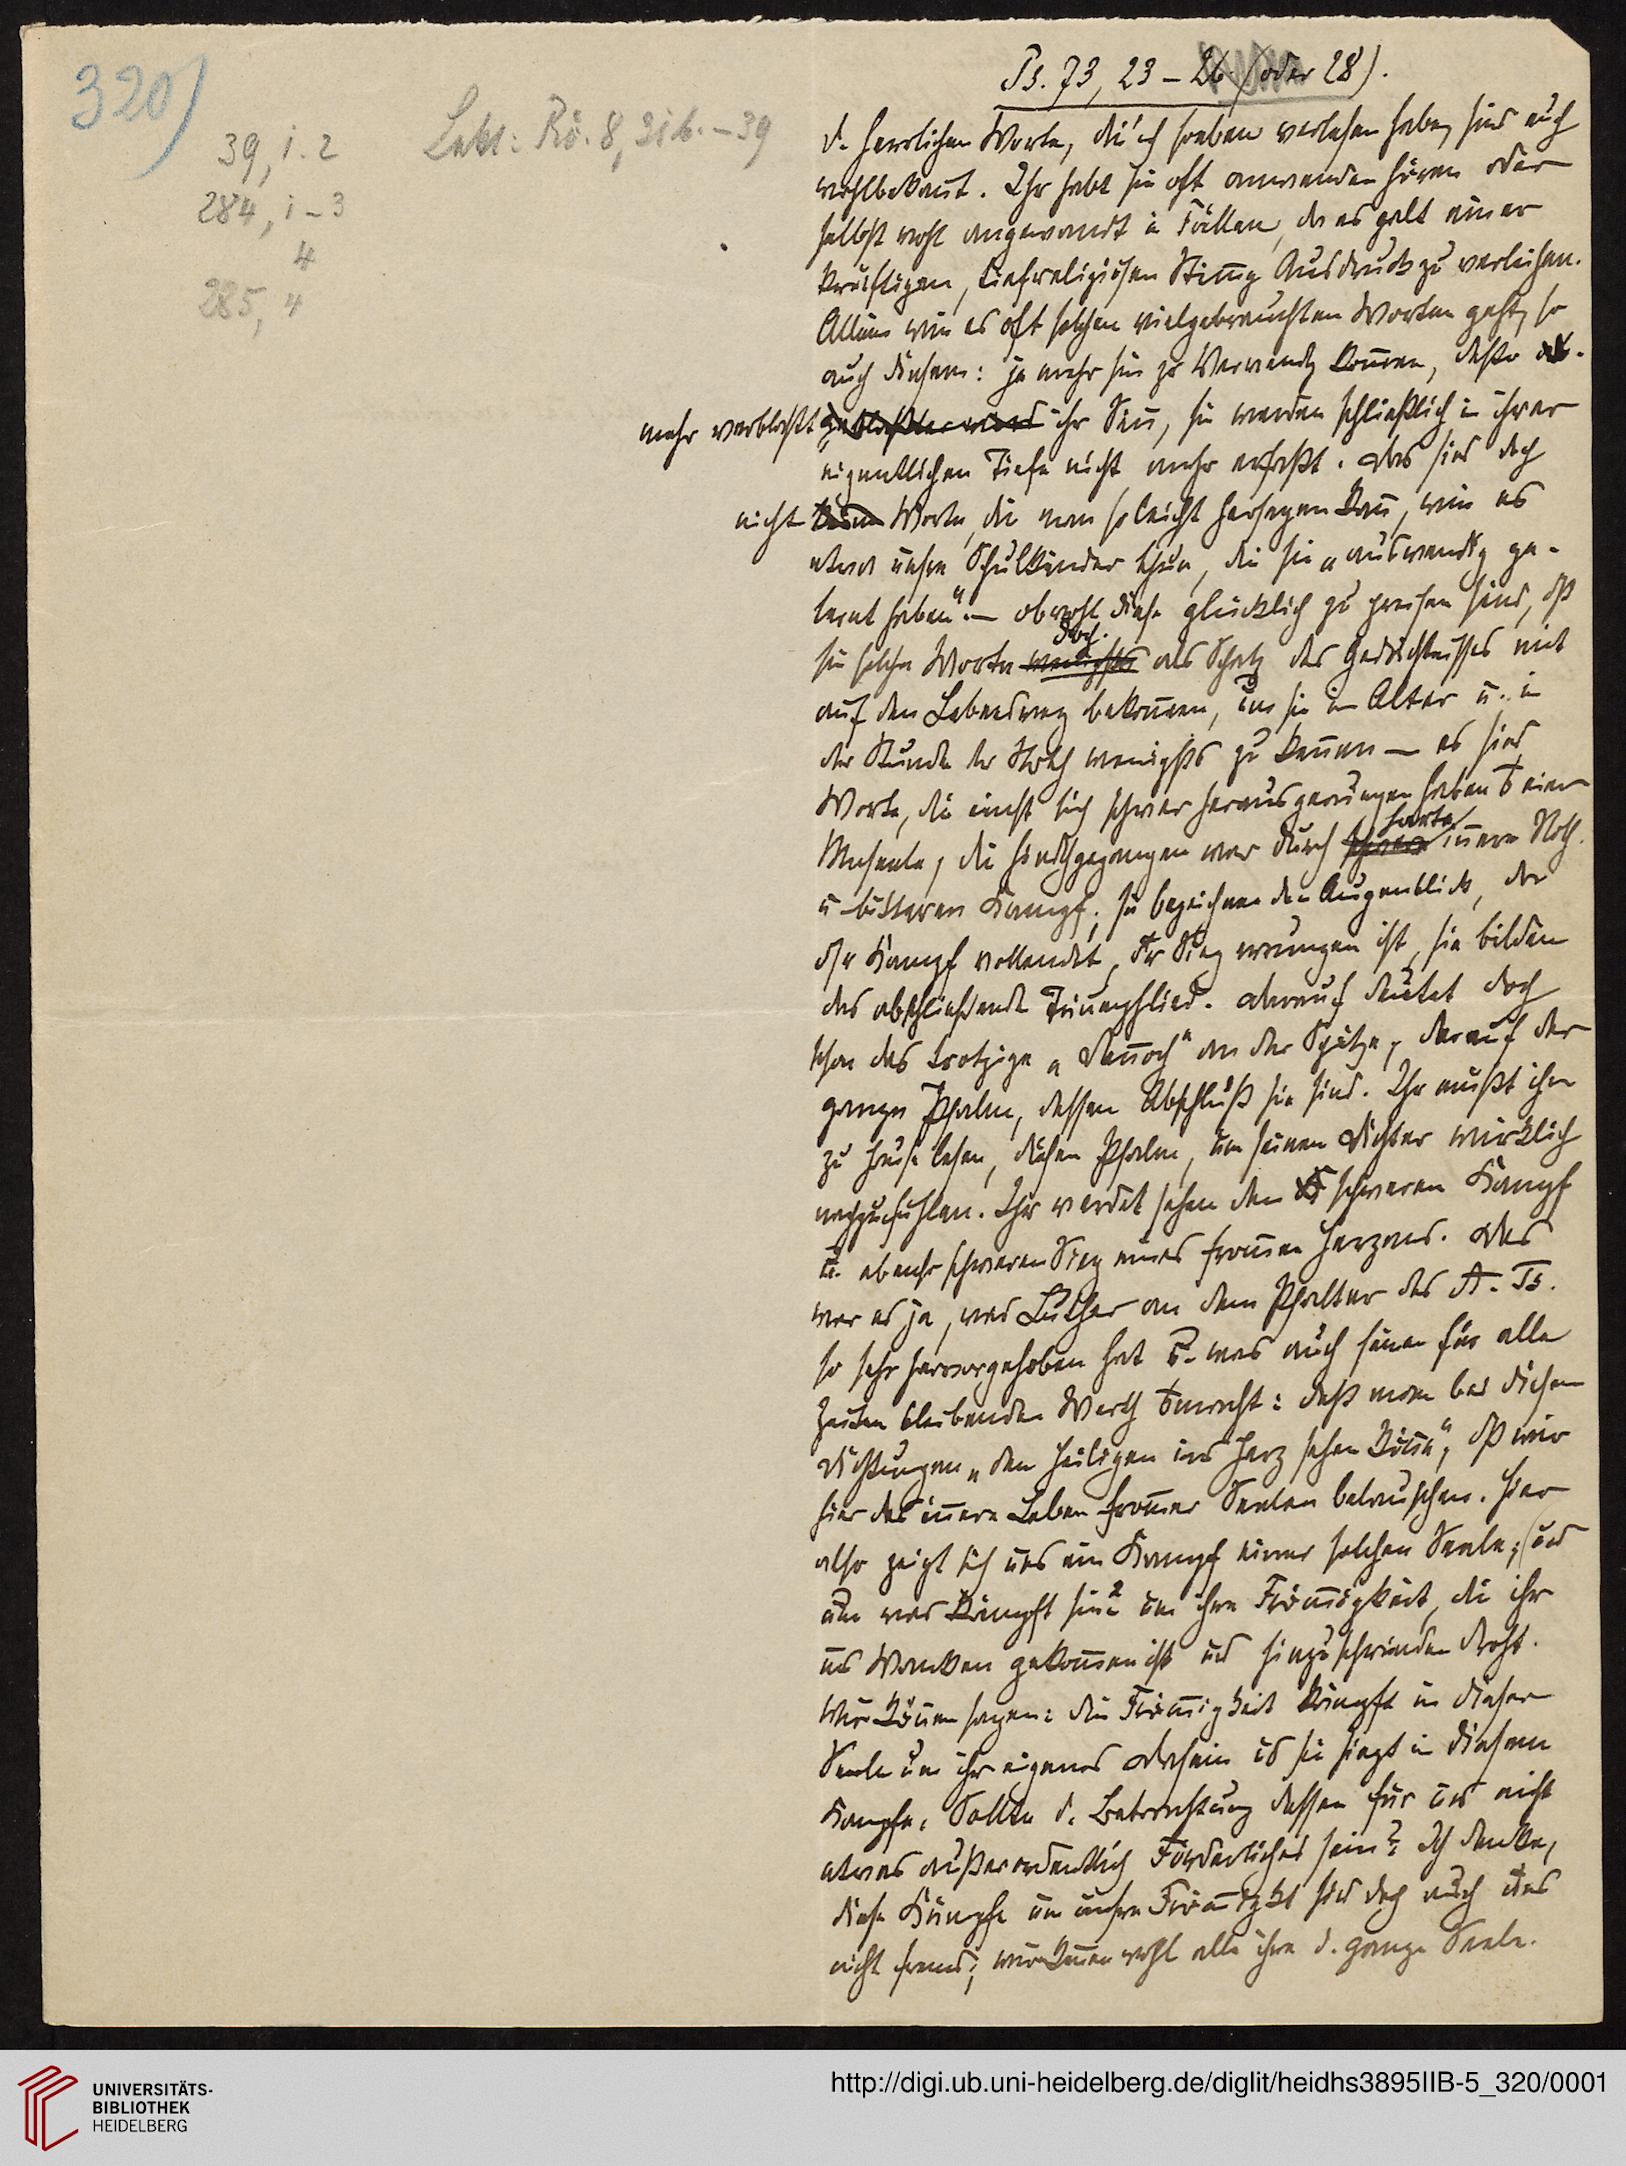 320)
39, 1. 2
284, 1-3
4
285, 4
Lekt: Rö. 8, 31b.-39
Ps. 73, 23 - 26 (oder 28).
D. herrlichen Worte, die ich soeben verlesen habe, sind euch
wohlbekannt. Ihr habt sie oft anwenden hören oder
selbst wohl angewandt in Fällen, da es galt einer
kräftigen, tiefreligiösen Stimmg Ausdruck zu verleihen.
Allein wie es oft solchen vielgebrauchten Worten geht, so
auch diesen: je mehr sie zr Verwendg kommen, desto
mehr verblaßt ihr Sinn, sie werden schließlich in ihrer
eigentlichen Tiefe nicht mehr erfaßt. Das sind doch
nicht Worte, die man so leicht hersagen kann, wie es
etwa unsre Schulkinder thun, die sie „auswendig ge-
lernt haben" — obwohl diese glücklich zu preisen sind, dß
sie solche Worte doch als Schatz des Gedächtnisses mit
auf den Lebensweg bekommen, um sie im Alter u. in
der Stunde der Noth wenigsts zu kennen — es sind
Worte, die einst sich schwer herausgerungen haben einer
Mseele, die hindchgegangen war durch harte innere Noth
u bitteren Kampf; sie bezeichnen den Augenblick, da
dsr Kampf vollendet, der Sieg errungen ist, sie bilden
das abschließende Triumphlied. Darauf deutet doch
schon das trotzige „Dennoch" an der Spitze, darauf der
ganze Psalm, dessen Abschluß sie sind. Ihr müßt ihn
zu Hause lesen, diesen Psalm, um seinem Dichter wirklich
nachzufühlen. Ihr werdet sehen den schweren Kampf
u. ebenso schweren Sieg eines frommen Herzens. Das
war es ja, was Luther an dem Psalter des A. Ts.
so sehr hervorgehoben hat u. was auch seinen für alle
Zeiten bleibenden Werth ausmacht: daß man bei diesen
Dichtungen „den Heiligen ins Herz sehen könne", dß wir
hier das innere Leben frommer Seelen belauschen. Hier
also zeigt sich uns ein Kampf einer solchen Seele; (und
um was kämpft sie? um ihre Frömmigkeit, die ihr
ins Wanken gekommen ist und hinzuschwinden droht.
Wir können sagen: die Frömmigkeit kämpft in dieser
Seele um ihr eigenes Dasein ud sie siegt in diesem
Kampfe. Sollte d. Betrachtung dessen für uns nicht
etwas außerordentlich Förderliches sein? Ich denke,
diese Kämpfe um unsre Frömmigkt sind doch auch uns
nicht fremd; wir kennen wohl alle ihre d. ganze Seele